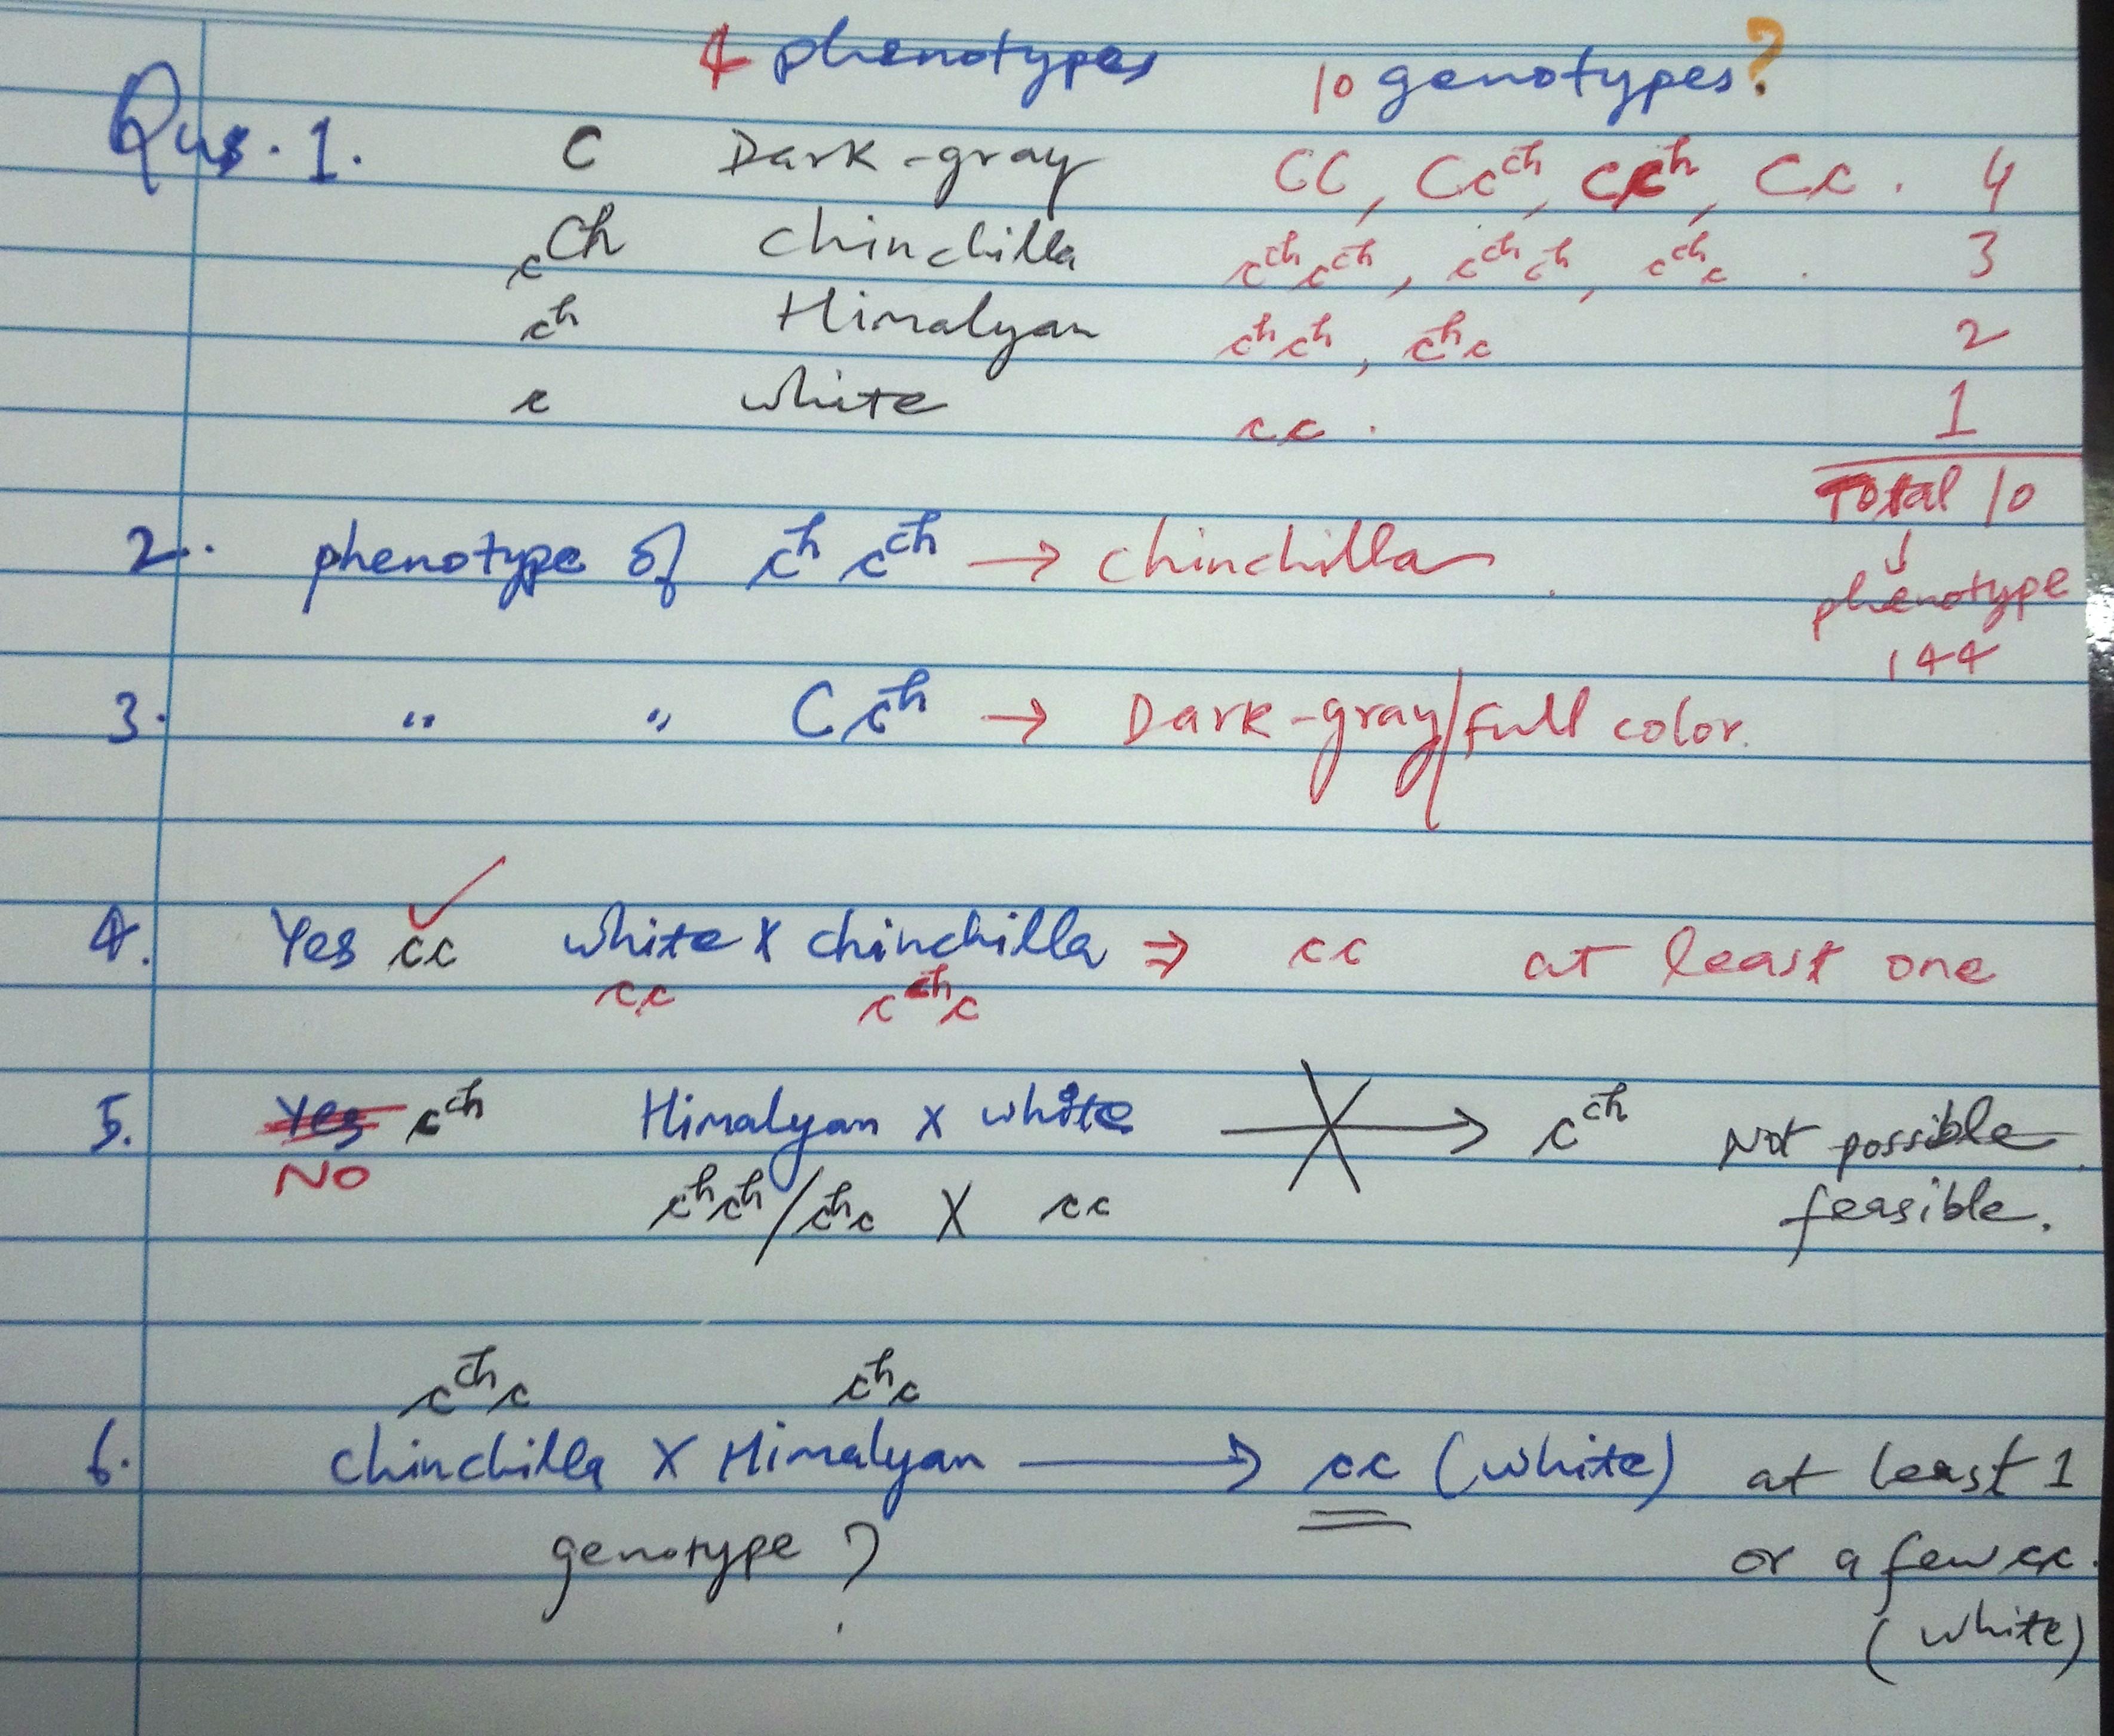 4 phenotypes 10 genotypes?
Qus. 1. C Dark-gray CC, Cc^ch, Cc^h, Cc. 4
c^ch chinchilla c^ch c^ch, c^ch c^h, c^ch c. 3
c^h Himalyan c^h c^h, c^h c 2
c white cc. 1
Total 10
↓
2. phenotype of c^h c^ch → chinchilla
phenotype
144
3. " " C c^h → Dark-gray/full color.
4. Yes cc ✓ white X chinchilla ⇒ cc at least one
cc c^ch c
5. Yes c^ch Himalyan X white → c^ch Not possible
NO c^h c^h / c^h c X cc feasible.
c^ch c c^h c
6. chinchilla X Himalyan → cc (white) at least 1
genotype? or a few cc.
(white)